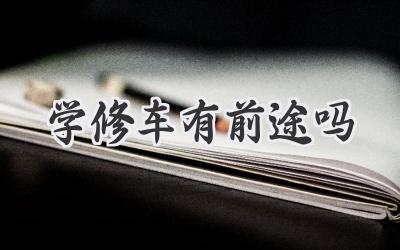 学修车有前途吗